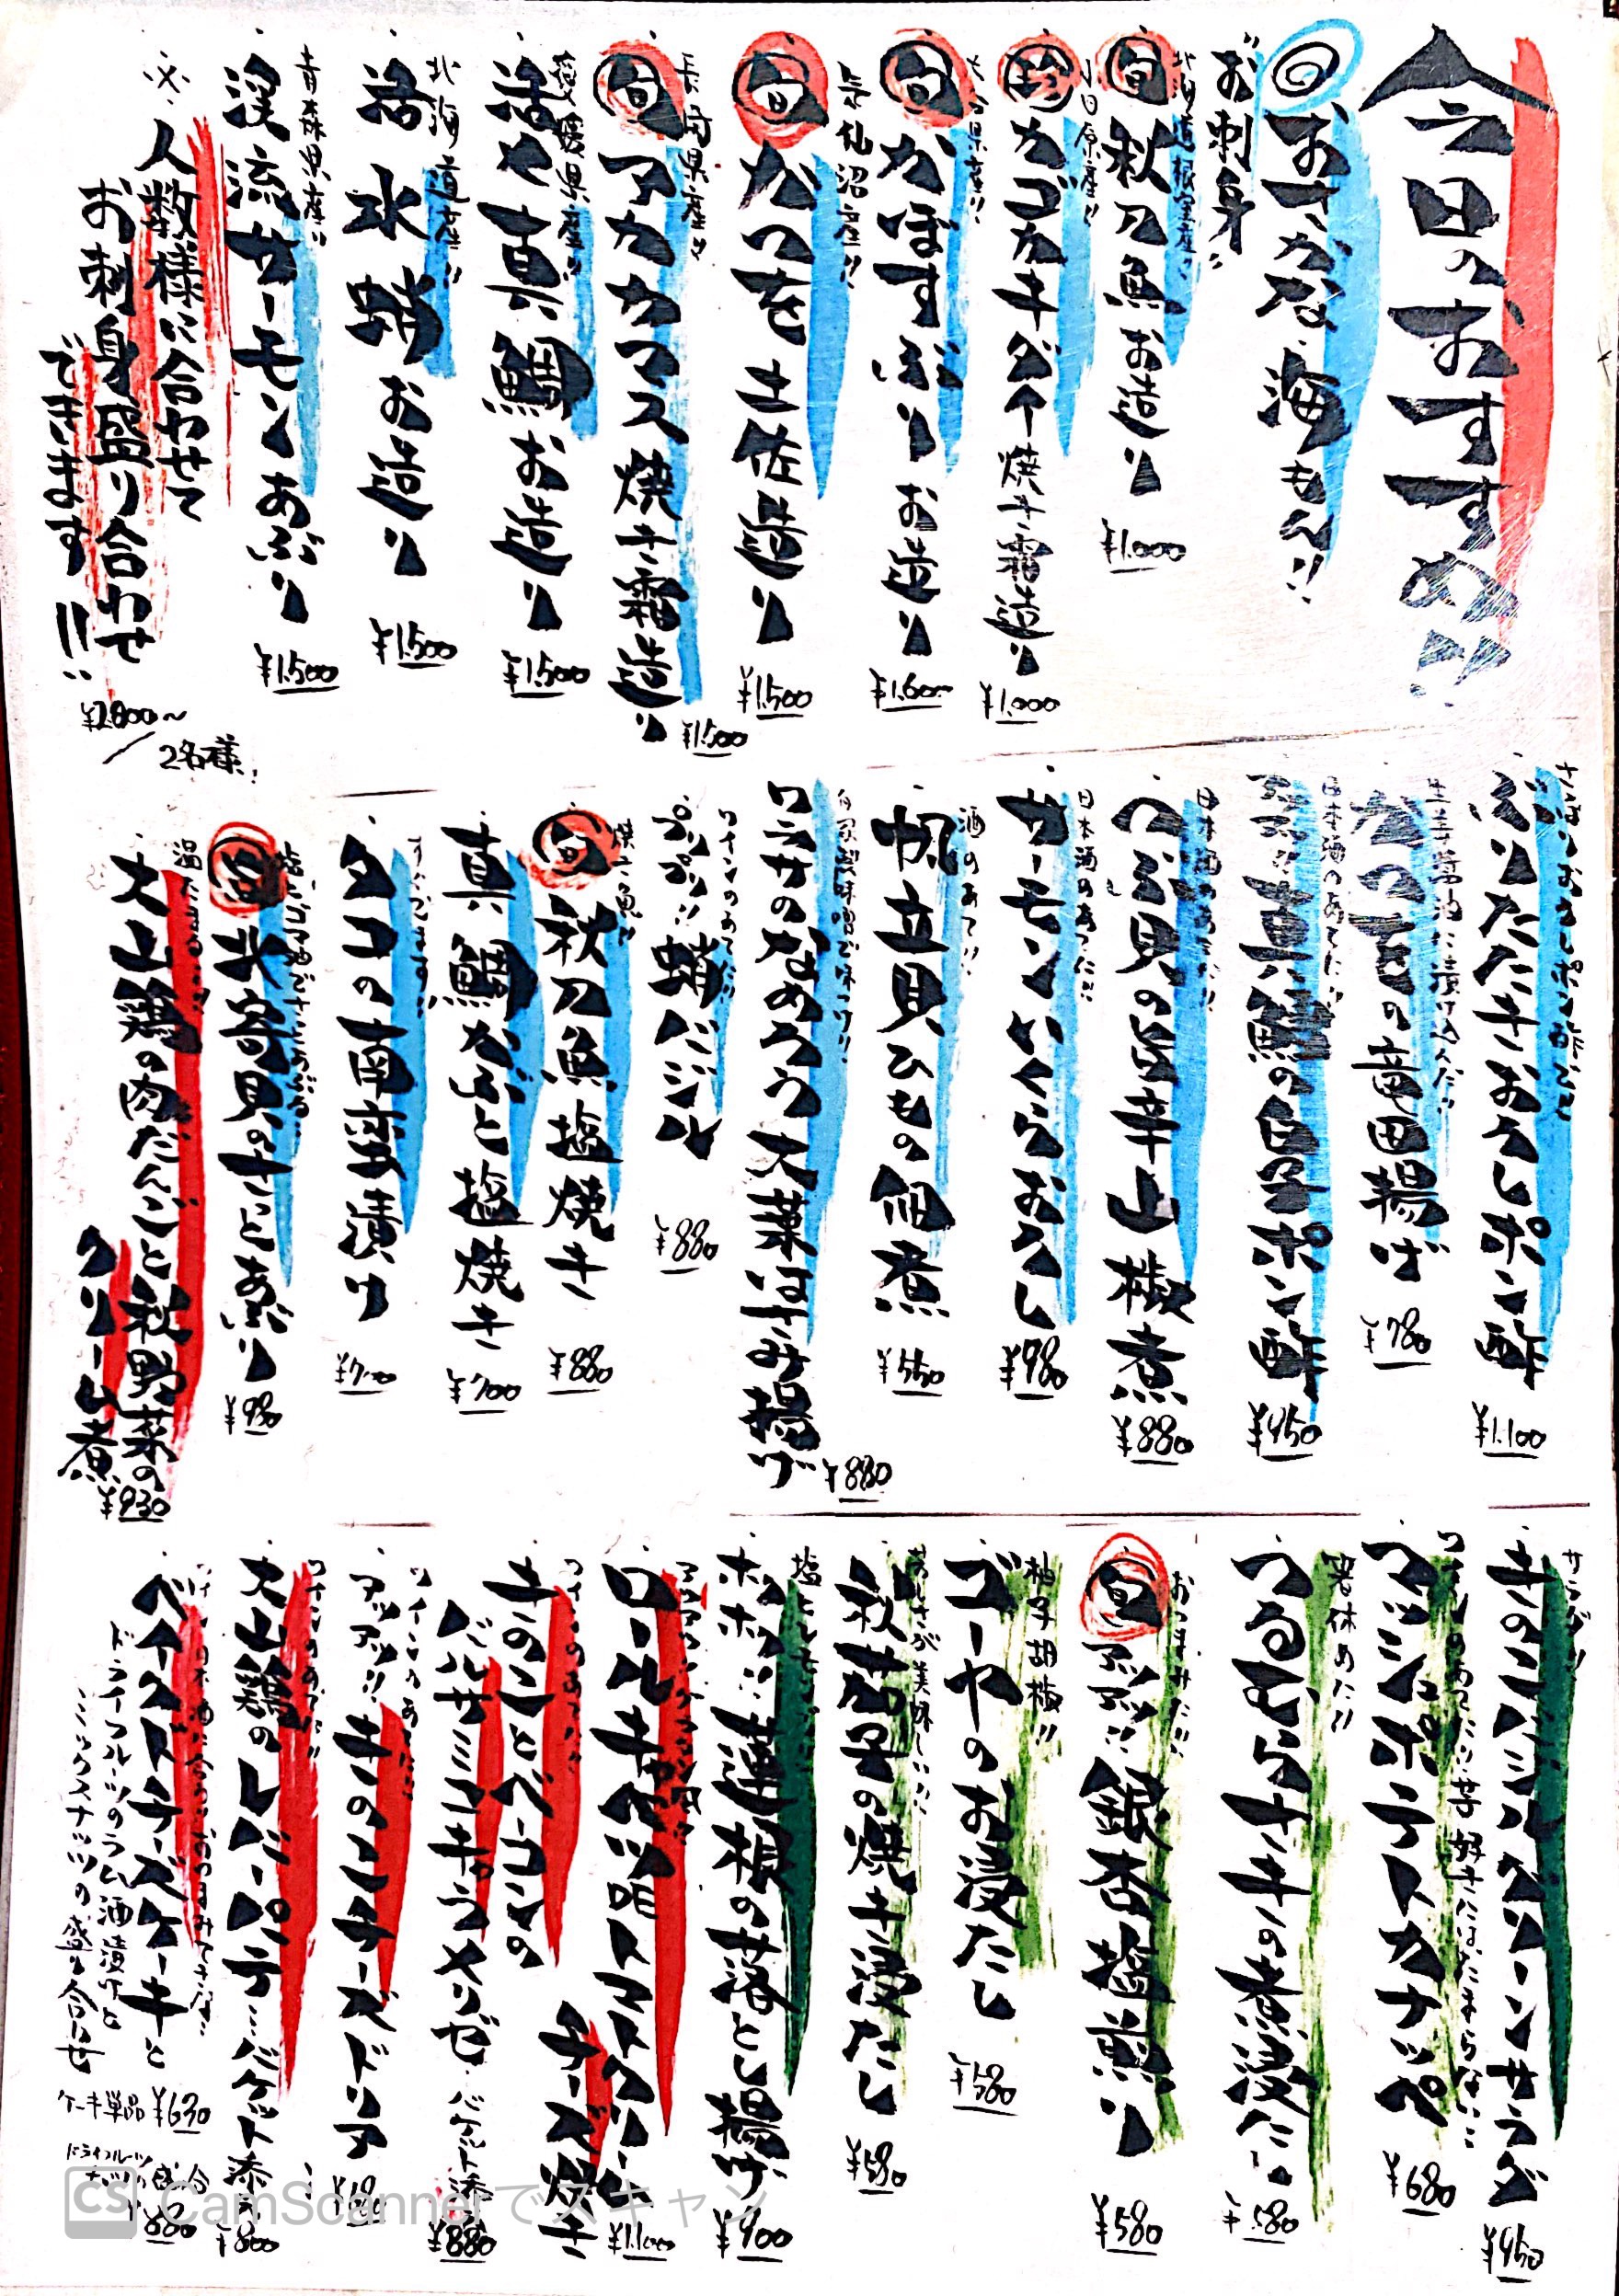 今日のおすすめ!!
おさかな 海もん!!
"お刺身"
北海道根室産!!
旬 秋刀魚お造り
¥1.000
小田原産!!
珍 カゴカキダイ焼き霜造り
¥1.000
大分県産!!
旬 かぼすぶりお造り
¥1.600
気仙沼産!!
旬 かつを 土佐造り
¥1.500
長崎県産!!
旬 アカカマス焼き霜造り
¥1.500
愛媛県産!!
活〆真鯛お造り
¥1.500
北海道産!!
活 水蛸お造り
¥1.500
青森県産!!
渓流サーモンあぶり
¥1.500
※人数様に合わせて
お刺身盛り合わせ
できます!!
¥2.800〜/2名様
ぶりたたきおろしポン酢
¥1.100
かつをの竜田揚げ
¥780
日本酒のあてに!!
真鯛の白子ポン酢
¥950
日本酒のあてに!!
つぶ貝の旨辛山椒煮
¥880
日本酒のあてに!!
サーモンいくらおろし
¥980
酒のあて!!
帆立貝ひもの佃煮
¥550
自家製味噌で
ワラサのなめろう大葉はさみ揚げ
¥880
ワインのあてに!!
プリップリッ!!蛸バジル
¥880
焼き魚!!
旬 秋刀魚塩焼き
¥880
真鯛かぶと塩焼き
¥700
タコの南蛮漬け
塩とゴマ油でさっとあぶる…
旬 北寄貝のさっとあぶり
¥980
大山鶏の肉だんごと秋野菜の
クリーム煮
¥930
サラダ!!
きのこバジルベーコンサラダ
¥950
マッシュポテトカナッペ
¥680
箸休めに!!
つるむらさきの煮浸し
¥580
おつまみに!!
旬 アツアツ!!銀杏塩煎り
¥580
柚子胡椒!!
ゴーヤのお浸たし
¥580
秋茄子の焼き浸たし
¥580
ホクホク!!蓮根の落とし揚げ
¥900
ロールキャベツ トマトクリーム
ワインのあてに!!
きのことベーコンの
チーズ焼き
バルサミコ バケット添え
¥880
ワインのあてに!!
アツアツ!!きのこチーズドリア
ワインのあてに!!
大山鶏のレバーパテ…バケット添え
¥800
ベイクドチーズケーキと
ドライフルーツのラム酒漬けと
ミックスナッツの盛り合わせ
ケーキ単品 ¥630
¥880
CS CamScannerでスキャン